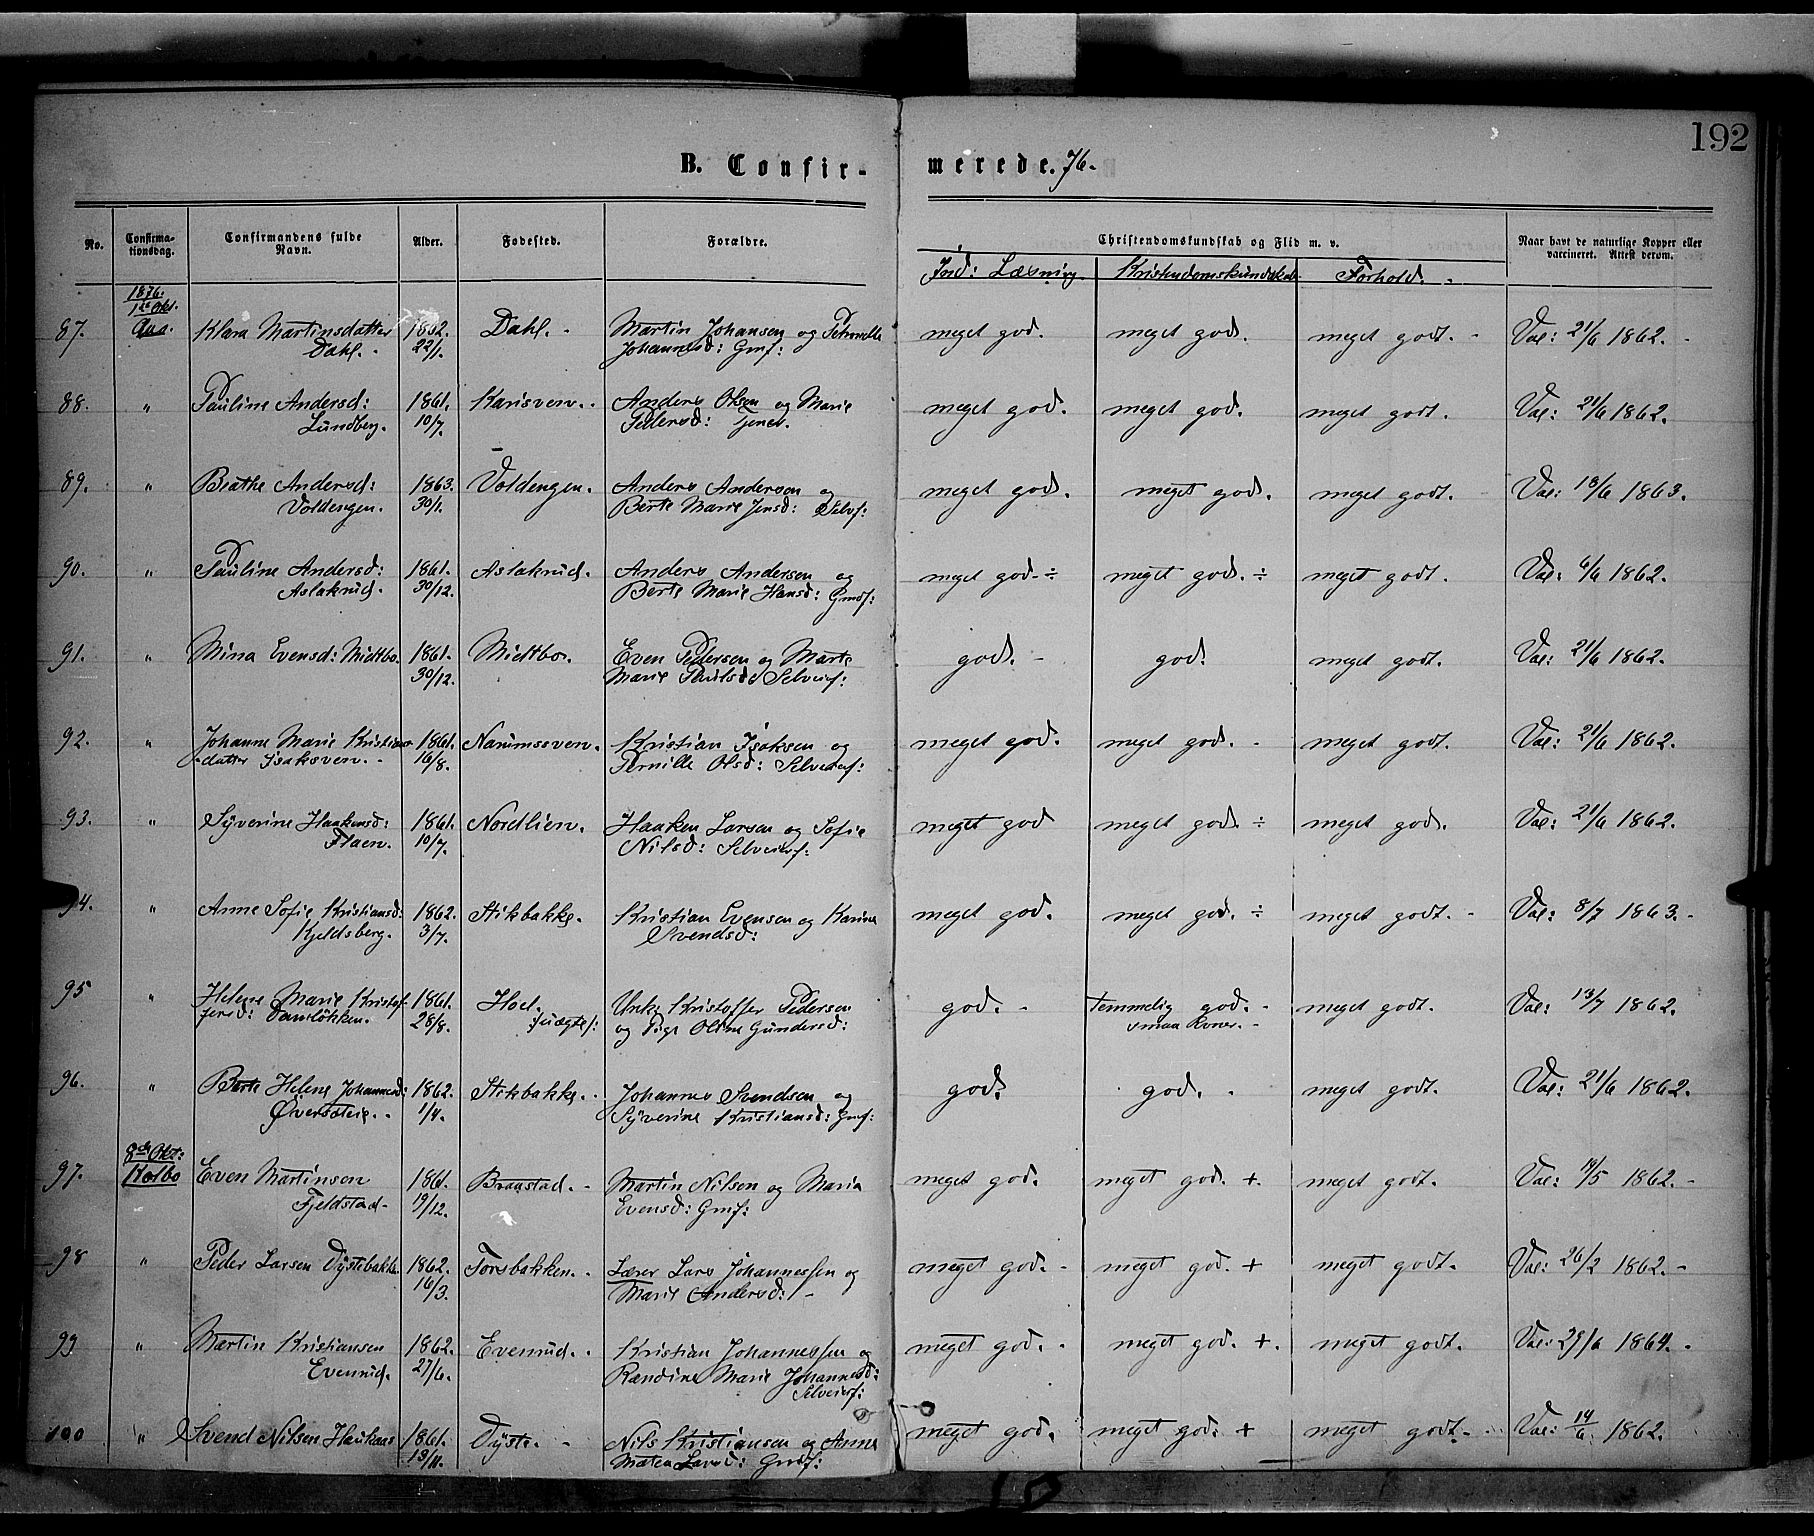 192
B. Confirmerede. 76.
No.
Confirmationsdag.
Confirmandens fulde Navn.
Alder.
Fødested.
Forældre.
Christendomskundskab og Flid m. v.
Naar havt de naturlige Kopper eller vaccineret. Attest derom.
Ind: Læsning. Kristendomskundskab Forhold. -
1876.
1ste Okt.
87. Aas. Klara Martinsdatter 1862. Dahl. - Martin Johansen og Petronelle meget god. meget god. meget godt. - Vac: 21/6 1862. -
Dahl. - 22/1. Johannesd: Gmf:
88. " Pauline Andersd: 1861. Karisven. - Anders Olsen og Marie meget god. meget god. meget godt. Vac: 21/6 1862.
Lundberg. 10/7. Pedersd:
89. " Beathe Andersd: 1863. Voldengen. Anders Andersen og meget god. meget god. meget godt. Vac: 18/6 1863.
Voldengen. 30/1. Berte Marie Jensd: Selvf:
90. " Pauline Andersd: 1861. Aslakrud. Anders Andersen og meget god. ÷ meget god. ÷ meget godt. Vac: 6/6 1862.
Aslakrud. 30/12. Berte Marie Hansd: Gmdf:
91. " Mina Evensd: Midtbo. 1861. Midtbo. Even Pedersen og Marte god. - god. meget godt. Vac: 21/6 1862.
30/12. Marie Paulsd Selveierf:
92. " Johanne Marie Kristians- 1861. Narumsven. Kristian Isaksen og meget god. meget god. - meget godt. Vac: 21/6 1862.
datter Isaksven. - 16/8. Pernille Olsd: Selveierf:
93. " Syverine Haakensd: 1861. Nordlien. Haaken Larsen og Sofie meget god meget god. ÷ meget god. Vac: 21/6 1862.
Flaen. 10/7. Nilsd: Selveierf:
94. " Anne Sofie Kristiansd: 1862. Stikbakke. Kristian Evensen og Karine meget god. meget god. ÷ meget godt. - Vac: 8/7 1863. -
Kjeldsberg. 3/7. Svendsd:
95 " Helene Marie Kristof- 1861. Hoel. Unk. Kristoffer Pedersen god. - temmelig god. - meget godt. Vac: 13/7 1862.
fersd: Damløkken. 28/8. Uægte: og Pige Oline Gundersd: smaa Evner. -
96. " Berte Helene Johannesd: 1862. Stikbakke. - Johannes Svendsen og god. god. - meget godt. Vac: 21/6 1862.
Øversteie. - 1/4. Syverine Kristiansd: Gmf:
8de Okt:
97. Kolbo Even Martinsen 1861. Braastad. - Martin Nilsen og Maria meget god. meget god. +. meget godt. Vac: 14/5 1862. -
Fjeldstad - 9/12. Evensd: Gmf:
98 " Peder Larsen Dystebakke 1862. Torsbakken. - Lærer Lars Johannessen og meget god. - meget god. + meget godt. Vac: 26/2 1862. -
16/3. Marie Andersd: -
99 " Martin Kristiansen 1862. Evenrud. - Kristian Johannessen og meget god. - meget god. +. meget godt. Vac: 29/6 1864. -
Evenrud. 27/6. Randine Marie Johannesd:
Selveierf:
100 " Svend Nilsen Haukaas 1861. Dyste. - Nils Kristiansen og Anne meget god. meget god. + meget godt. - Vac: 14/6 1862.
13/11. Maten Larsd: Gmdf: